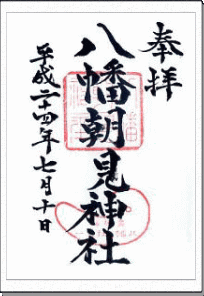 奉拝
八幡朝見神社
平成二十四年七月十日